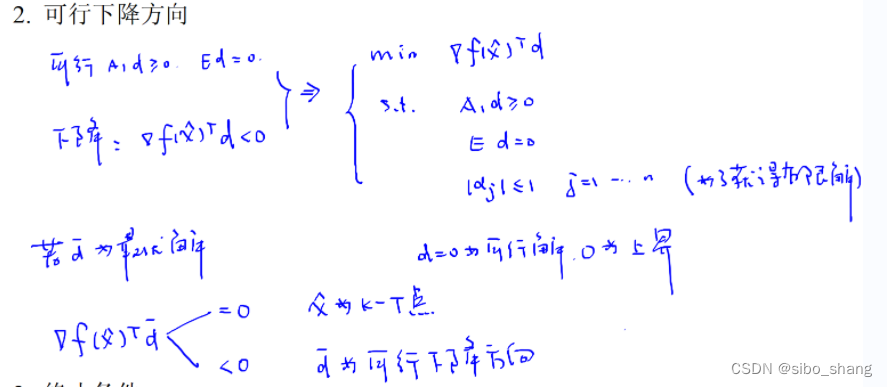 2. 可行下降方向
可行 A₁d≥0. Ed=0.
下降: ∇f(x̂)ᵀd<0
⇒
min ∇f(x̂)ᵀd
s.t. A₁d≥0
E d=0
|dⱼ|≤1 j=1 … n (为了获得有限解)
若 d̄ 为最优解 d=0 为可行解. 0 为上界
∇f(x̂)ᵀd̄
=0 x̂ 为 K-T 点
<0 d̄ 为可行下降方向
CSDN @sibo_shang